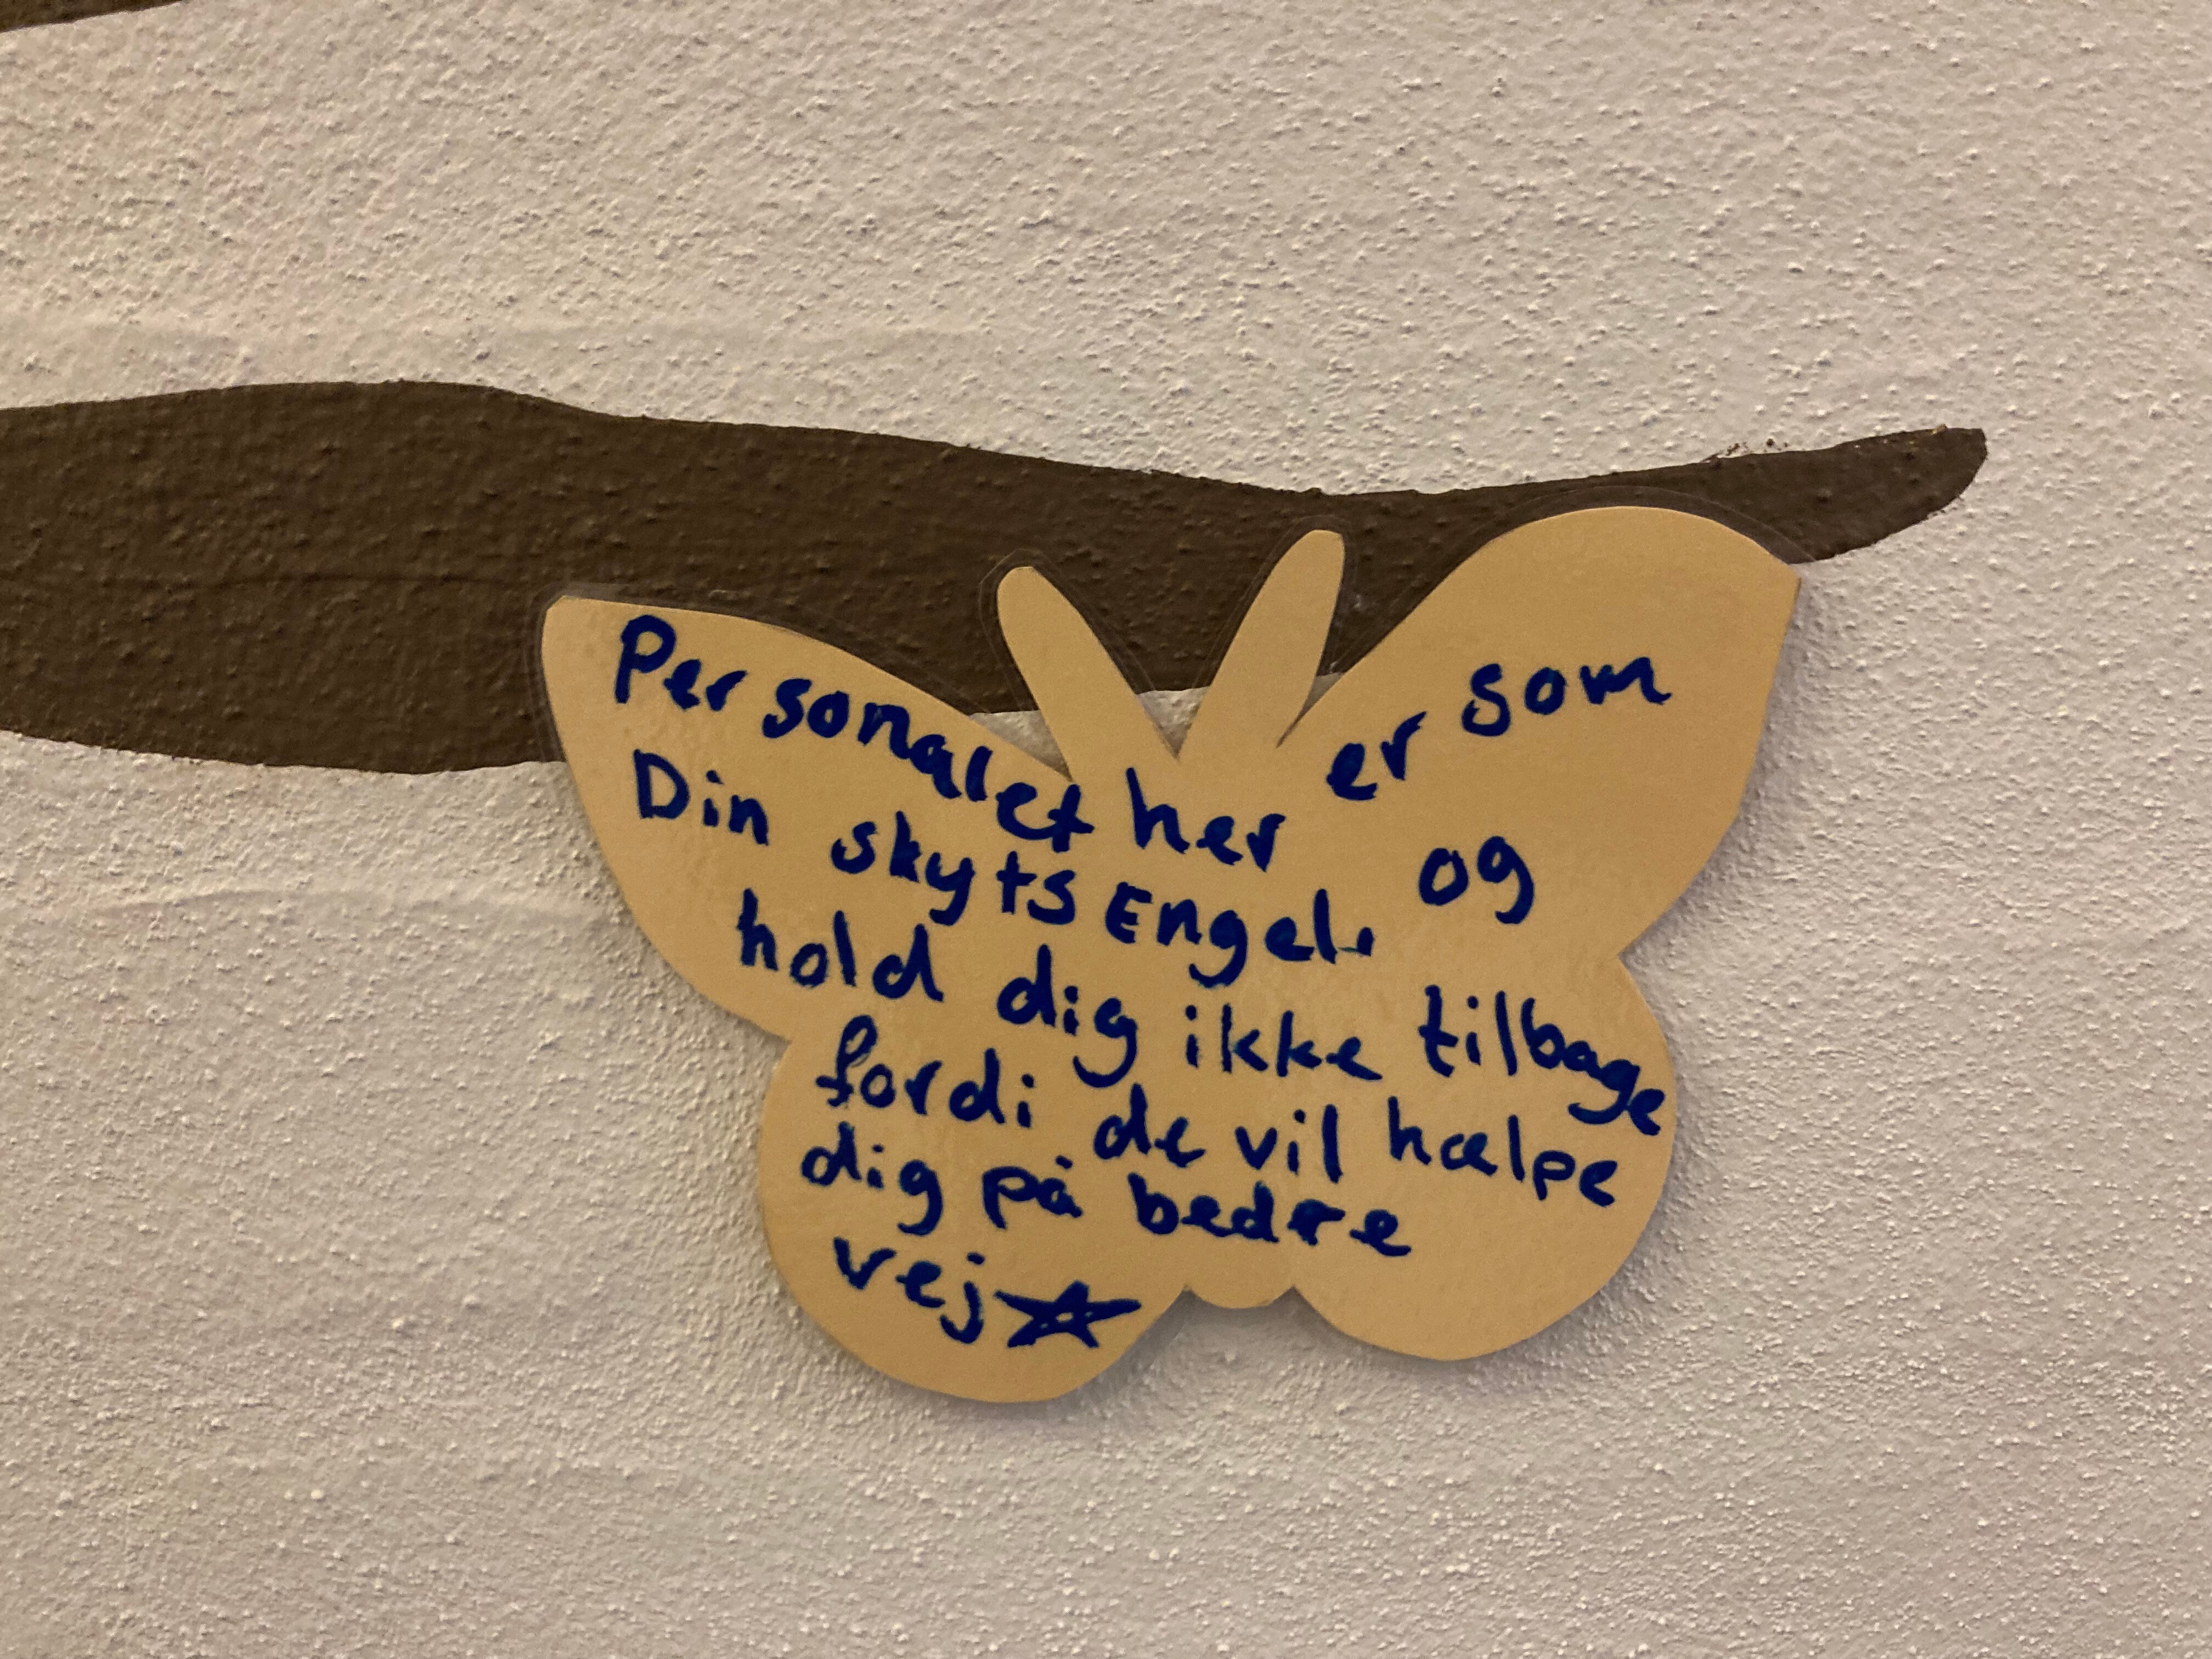 Personalet her er som
Din skyts Engel. og
hold dig ikke tilbage
fordi de vil hælpe
dig på bedre
vej